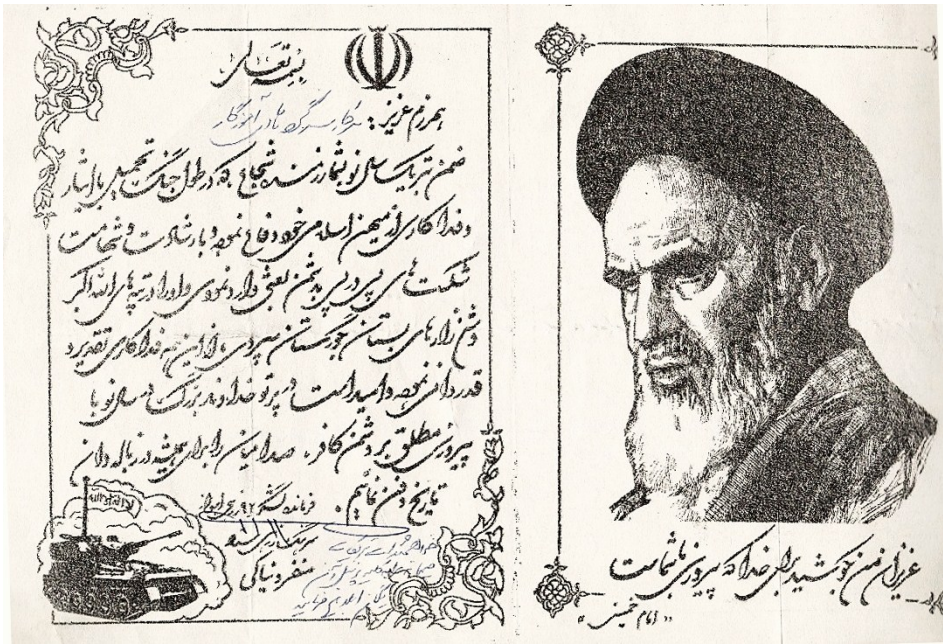 بسمه تعالی
همرزم عزیز: سرکار سرگرد نادر آموزگار
ضمن تبریک سال نو بشما رزمنده شجاع که در طول جنگ تحمیلی با ایثار
و فداکاری از میهن اسلامی خود دفاع نموده و با رشادت و شهامت
شکست های پی در پی بدشمن بعثی وارد نمودی و او را در تپه های الله اکبر
و شن زارهای بستان بگورستان سپردی. از این همه فداکاری تقدیر و
قدردانی نموده و امید است در پرتو خداوند بزرگ در سال نو با
پیروزی مطلق بر دشمن کافر، صدامیان را برای همیشه در زباله دان
تاریخ دفن نمائیم.
فرمانده لشگر ۹۲ زرهی اهواز
سرهنگ
منفرد نیاکی
عزیزان من بکوشید برای خدا که پیروزی با شماست
"امام خمینی"